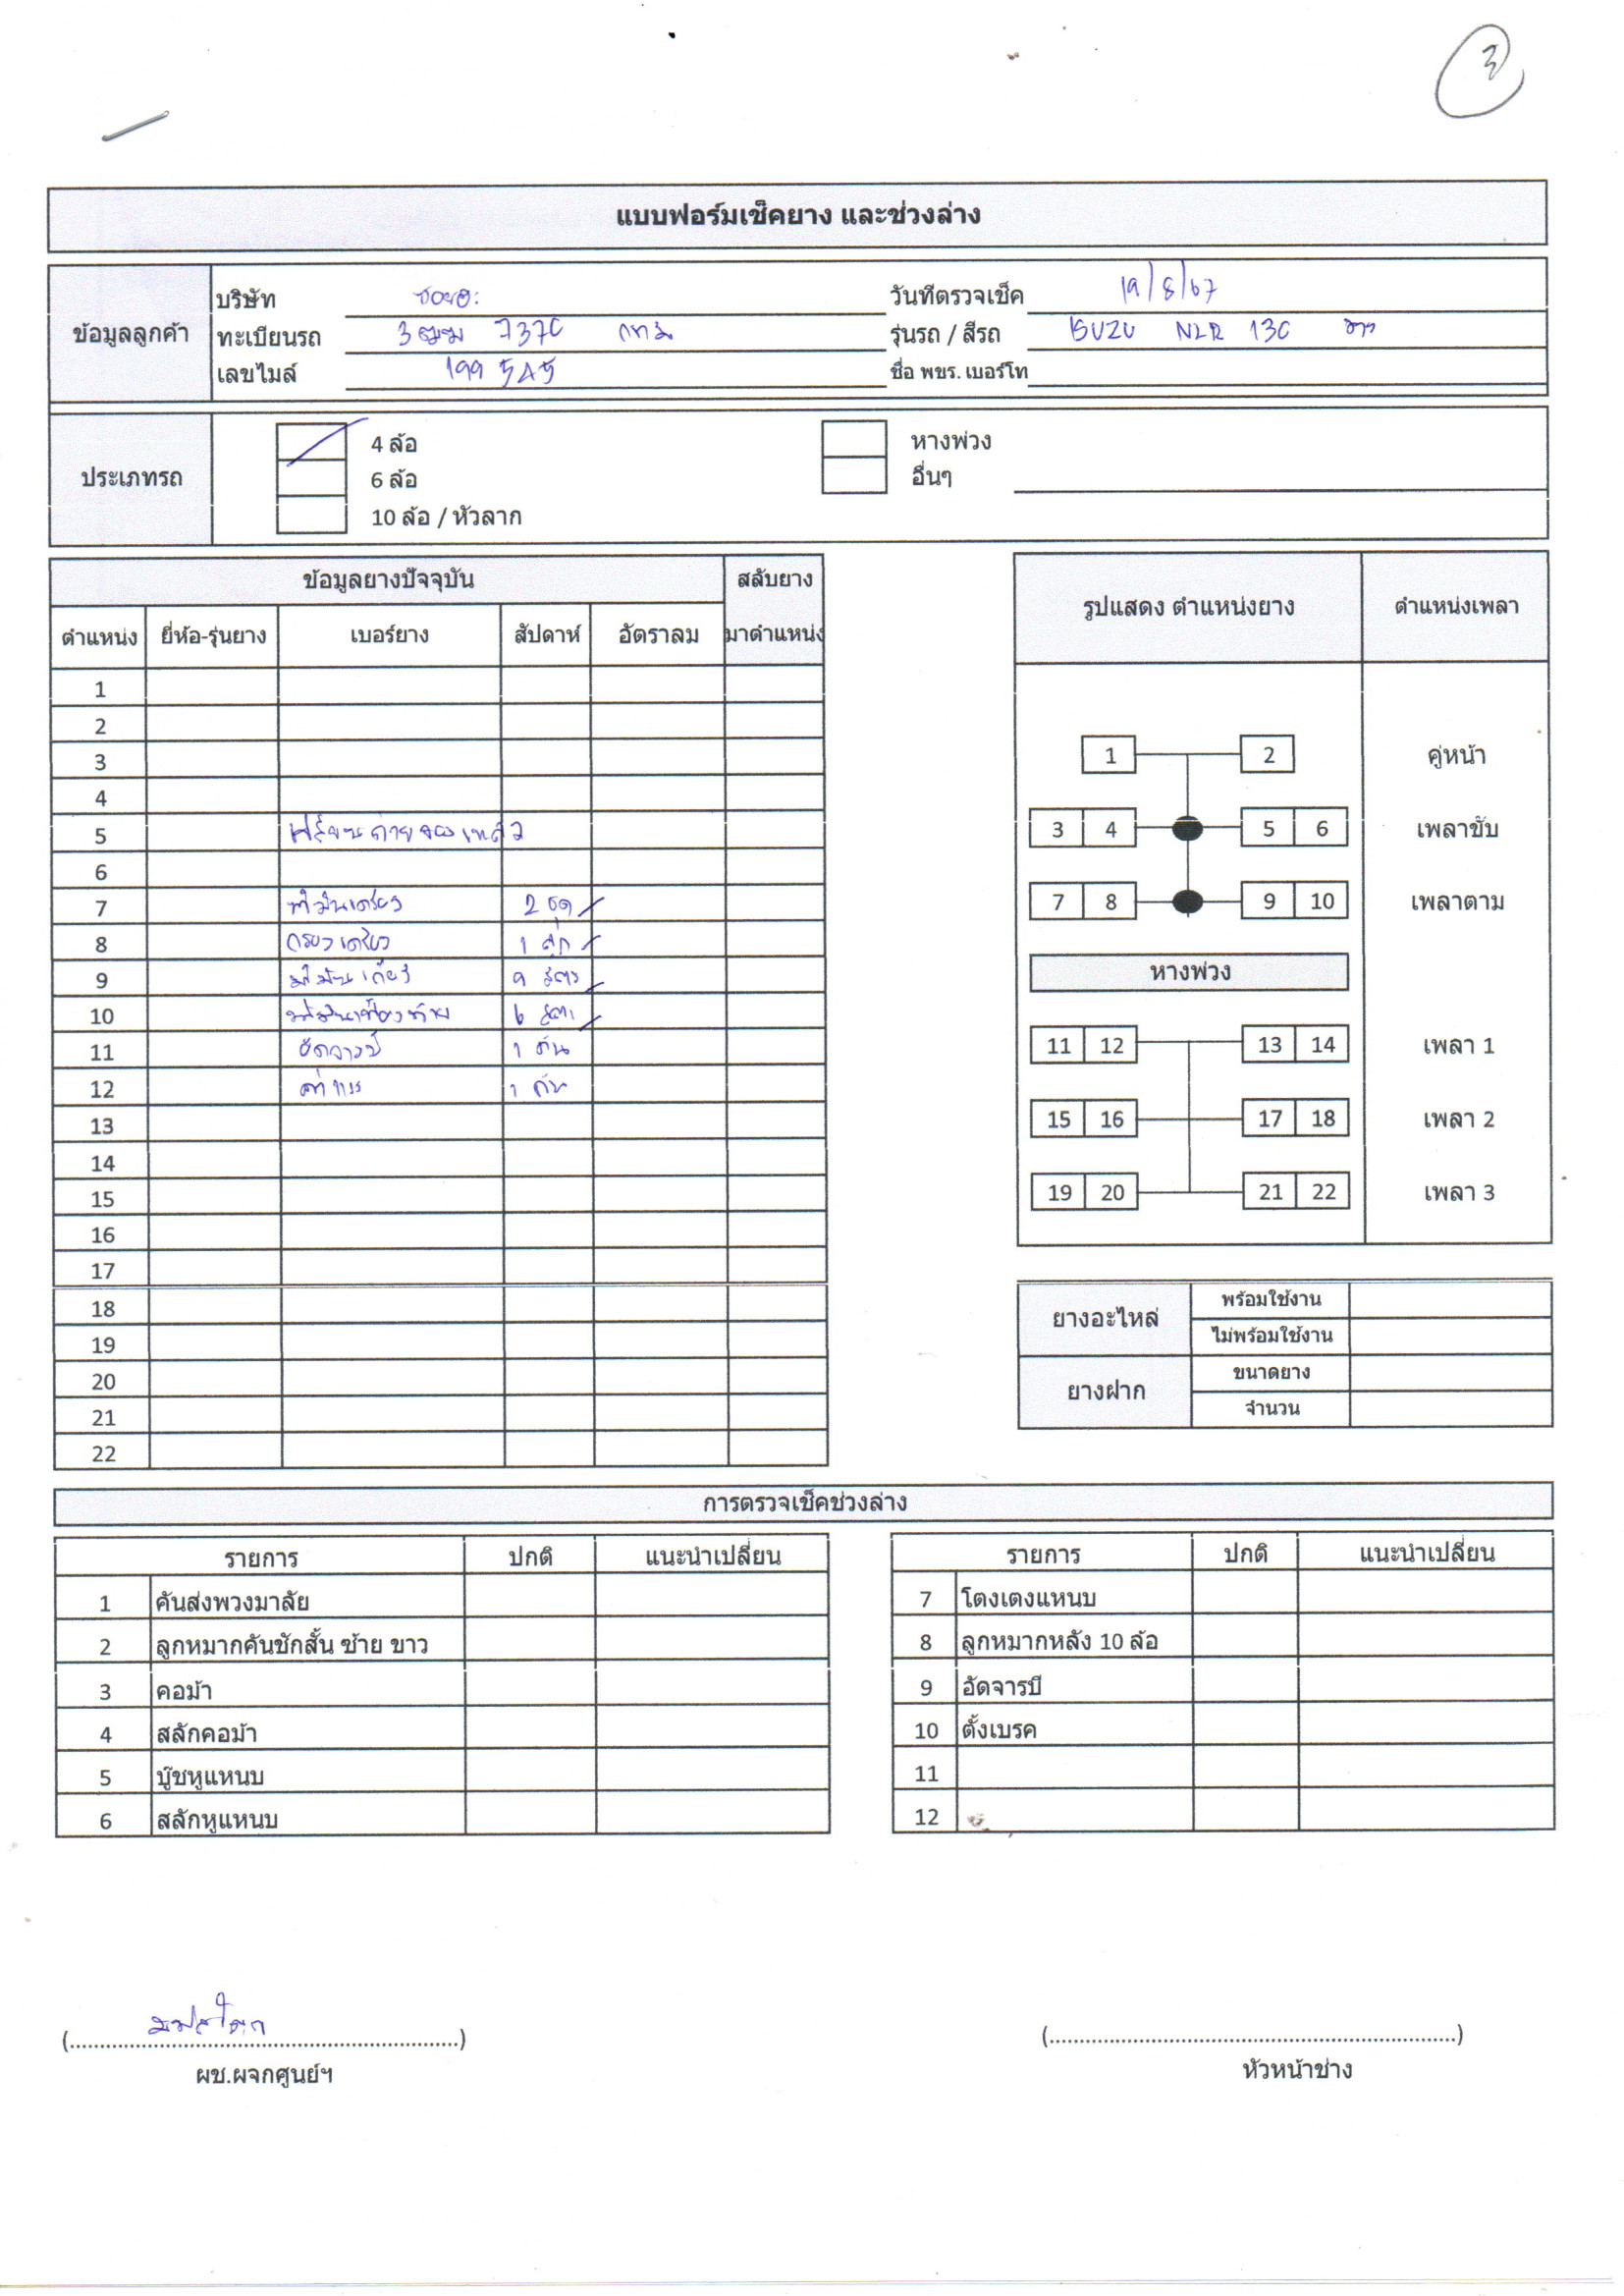 3
แบบฟอร์มเช็คยาง และช่วงล่าง
ข้อมูลลูกค้า
บริษัท
วันที่ตรวจเช็ค 19/8/67
ทะเบียนรถ 3ฒฆ 7370 กทม
รุ่นรถ / สีรถ ISUZU NLR 130 ขาว
เลขไมล์ 199 545
ชื่อ พขร. เบอร์โท
ประเภทรถ
4 ล้อ
6 ล้อ
10 ล้อ / หัวลาก
หางพ่วง
อื่นๆ
ข้อมูลยางปัจจุบัน สลับยาง
ตำแหน่ง ยี่ห้อ-รุ่นยาง เบอร์ยาง สัปดาห์ อัตราลม มาตำแหน่ง
1
2
3
4
5 เปลี่ยนถ่ายของเหลว
6
7 น้ำมันเครื่อง 2 ชุด
8 กรองเครื่อง 1 ลูก
9 น้ำมันเกียร์ 9 ลิตร
10 น้ำมันเฟืองท้าย 6 ลิตร
11 อัดจารบี 1 คัน
12 ค่าแรง 1 คัน
13
14
15
16
17
18
19
20
21
22
รูปแสดง ตำแหน่งยาง ตำแหน่งเพลา
1 2 คู่หน้า
3 4 5 6 เพลาขับ
7 8 9 10 เพลาตาม
หางพ่วง
11 12 13 14 เพลา 1
15 16 17 18 เพลา 2
19 20 21 22 เพลา 3
ยางอะไหล่ พร้อมใช้งาน
ไม่พร้อมใช้งาน
ยางฝาก ขนาดยาง
จำนวน
การตรวจเช็คช่วงล่าง
รายการ ปกติ แนะนำเปลี่ยน
1 คันส่งพวงมาลัย
2 ลูกหมากคันชักสั้น ซ้าย ขาว
3 คอม้า
4 สลักคอม้า
5 บู๊ชหูแหนบ
6 สลักหูแหนบ
รายการ ปกติ แนะนำเปลี่ยน
7 โตงเตงแหนบ
8 ลูกหมากหลัง 10 ล้อ
9 อัดจารบี
10 ตั้งเบรค
11
12
(..................................................................)
ผช.ผจกศูนย์ฯ
(......................................................................)
หัวหน้าช่าง